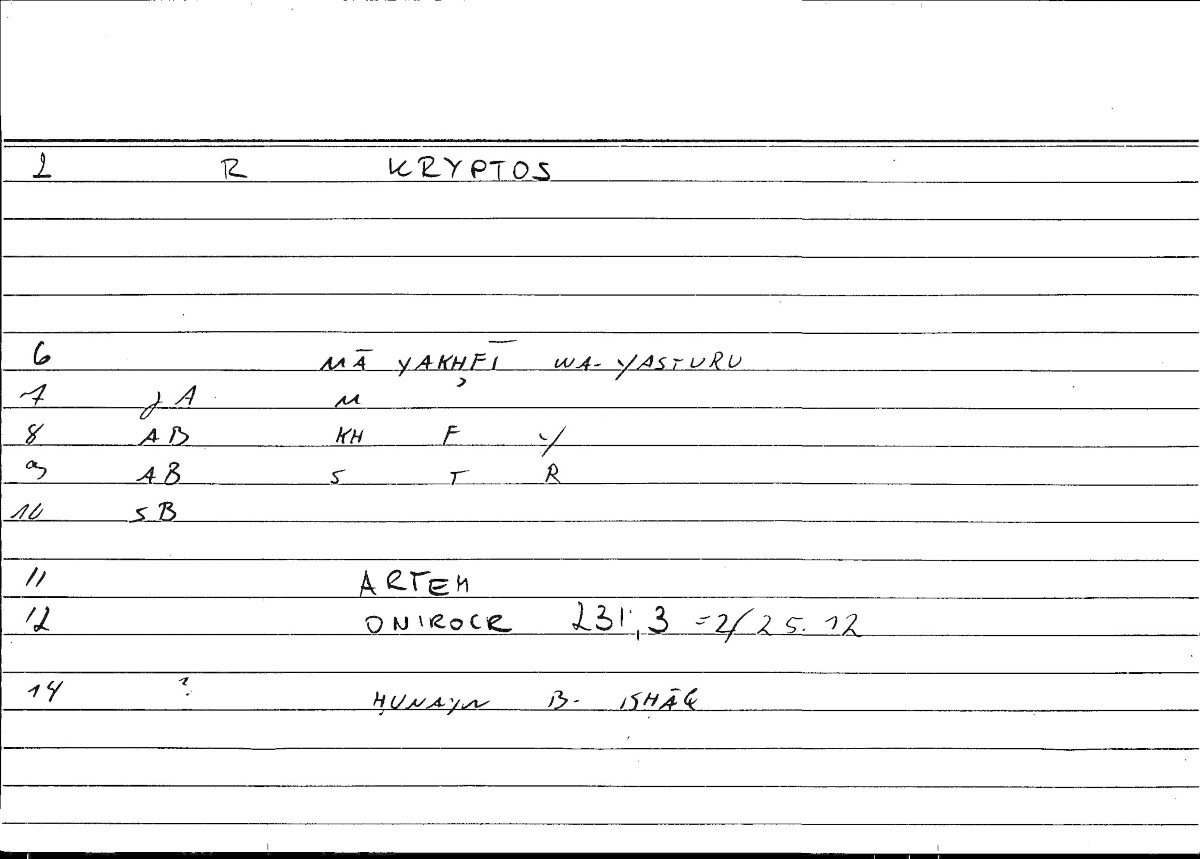 2 R KRYPTOS
6 MĀ YAKHFĪ WA-YASTURU
7 JA M
8 AB KH F Y
9 AB S T R
10 SB
11 ARTEM
12 ONIROCR 231,3 = 2/25.12
14 ? ḤUNAYN B- ISḤĀQ